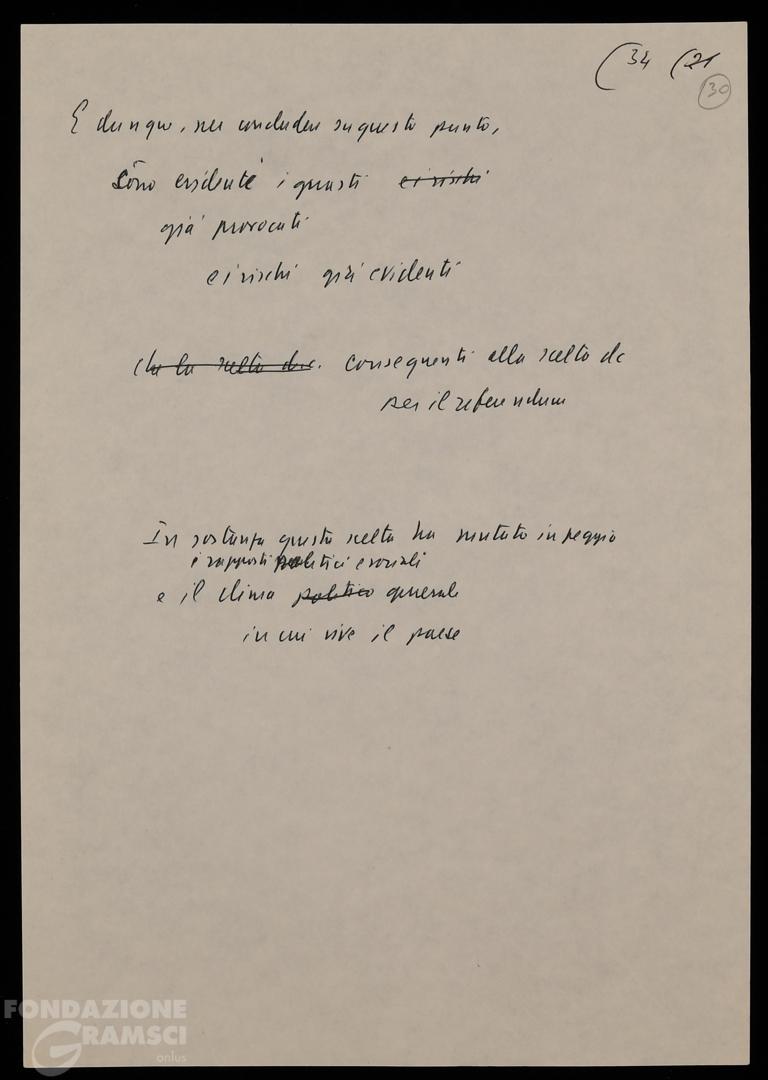 (34 (21
30
E dunque, per concludere su questo punto,
Sono evidenti i guasti e i rischi
già provocati
e i rischi già evidenti
che la scelta dc. conseguenti alla scelta dc
per il referendum
In sostanza questa scelta ha mutato in peggio
i rapporti politici e sociali
e il clima politico generale
in cui vive il paese
FONDAZIONE
GRAMSCI
onlus